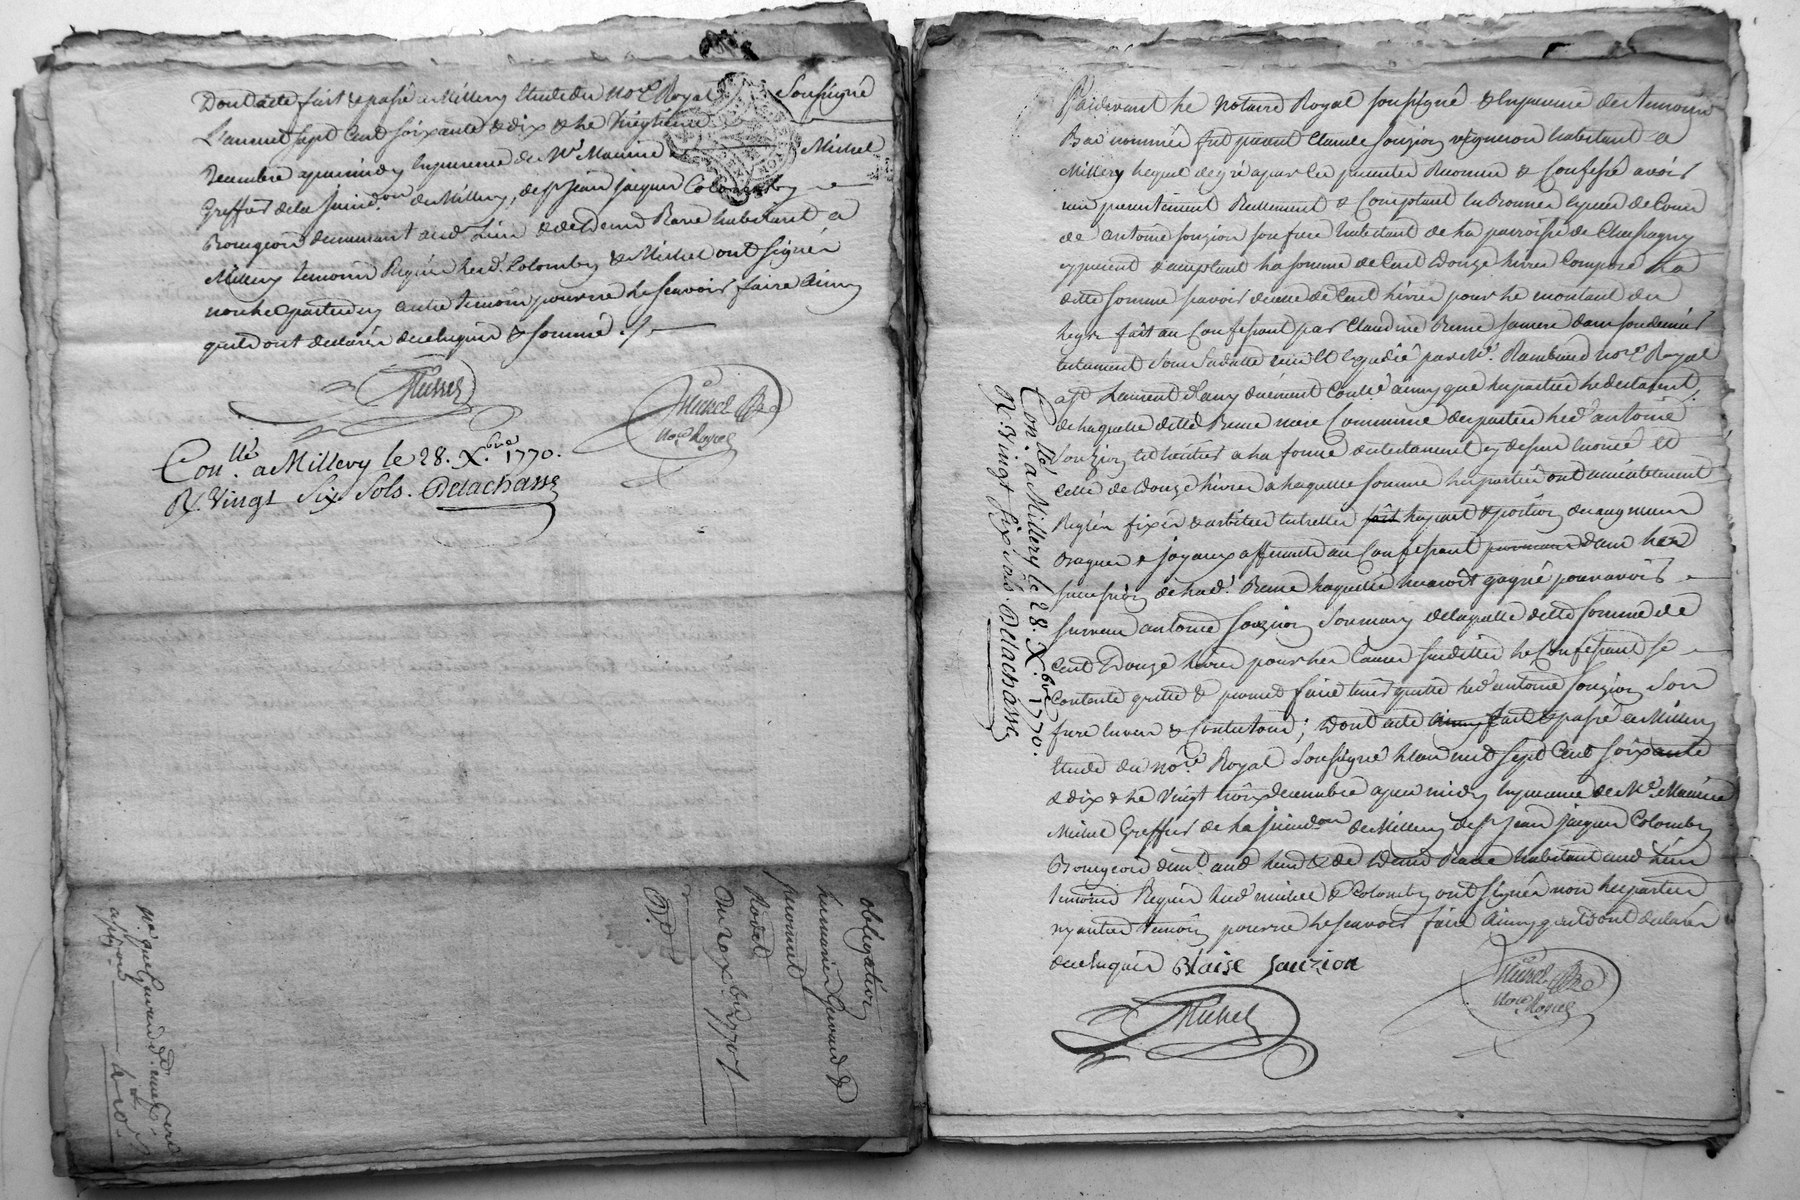 Dont acte fait & passé a Millery Etude du no.re Royal Soussigné
L'an mil sept Cent soixante & dix & le vingtieme
Decembre apres midy En presence de M.e Maurice Michel
Greffier de la Juridon de Millery, de sr Jean Jacques Colomby
Bourgeois demeurant aud. Lieu & de Denis Rave habitant a
Millery temoins Requis Led. Colomby & Michel ont signés
non les parties ny autre temoin pour ne le scavoir faire Ainsy
quils ont declarés de ce Enquis & sommé ./.
Michel
no.re Royal
Con.llé a Millery le 28. X.bre 1770.
R. Vingt Six Sols. Delachasse
obligation
du 20 X.bre 1770
Pardevant Le Notaire Royal soussigné & En presence des temoins
Bas nommés fut present Claude souzion vigneron habitant a
Millery Lequel de gré a par les presentes Reconnu & Confessé avoir
reçu presentement Reellement & Comptant En Bonnes Especes de Cours
de antoine souzion son frere habitant de La paroisse de Chassagny
present & acceptant La somme de Cent Douze livres Composée La
ditte somme scavoir de celle de Cent livres pour le montant du
Legs fait au Confessant par Claudine Reme sa mere dans son dernier
testament sous sa datte reçu Et Expedié par M.e Rambaud no.re Royal
a st Laurent d'agny duement Conllé ainsy que les parties le declarent,
de laquelle ditte Reme mere Commune des parties led. antoine
Souzion est heritier a La forme du testament cy dessus Enoncé Et
Celle de Douze livres a laquelle somme les parties ont amiablement
Reglés fixés & arbitrés Entrelles fait la part & portion des augment
Bagues & joyaux afferante au Confessant provenant dans La
succession de lad. Reme laquelle les avoit gagné pour avoir
survecu antoine souzion son mary de laquelle ditte somme de
Cent Douze livres pour les Causes susdittes le Confessant se
Contente quitte & promet faire tenir quitte led. antoine souzion son
frere Envers & Contre tous; Dont acte ainsy fait & passé a Millery
Etude du no.re Royal soussigné L'an mil sept Cent soixante
& dix & le Vingt trois decembre apres midy En presence de M.e Maurice
Michel Greffier de la Juridon de Millery de sr Jean Jacques Colomby
Bourgeois demt. aud. lieu & de Denis Rave habitant aud. Lieu
temoins Requis Led. michel & Colomby ont signés non les parties
ny autre temoin pour ne le scavoir faire Ainsy quils ont declarés
de ce Enquis Blaise Souzion
Michel
no.re Royal
Con.llé a Millery le 28. X.bre 1770.
R. Vingt Six sols. Delachasse